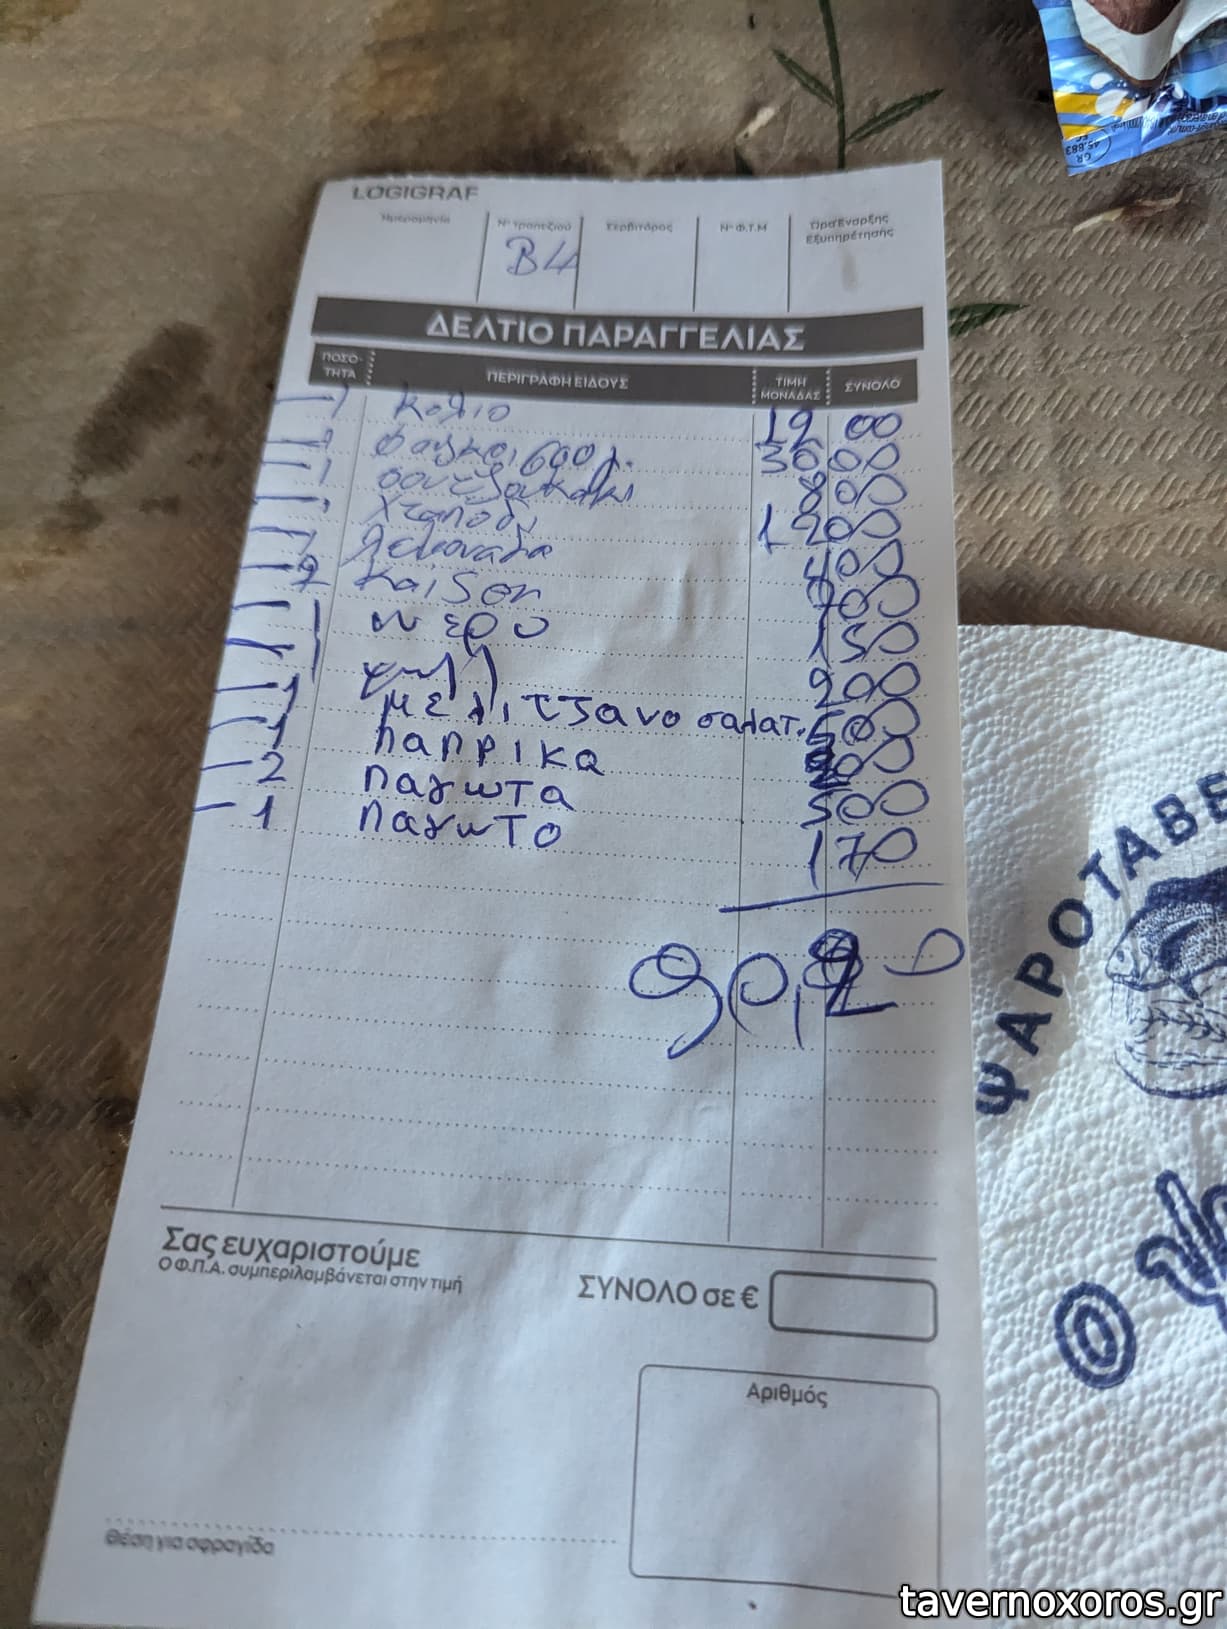 LOGIGRAF
Ημερομηνία Νº τραπεζιού Σερβιτόρος Νº Φ.Τ.Μ Ώρα Έναρξης Εξυπηρέτησης
B4
ΔΕΛΤΙΟ ΠΑΡΑΓΓΕΛΙΑΣ
ΠΟΣΟ-ΤΗΤΑ ΠΕΡΙΓΡΑΦΗ ΕΙΔΟΥΣ ΤΙΜΗ ΜΟΝΑΔΑΣ ΣΥΝΟΛΟ
1 κολιο 12 00
1 600 γ. 30 00
1 σουτζουκακι 8 00
1 χταπόδι 12 00
1 λεμοναδα 4 00
2 καιsοη 7 00
1 νερο 1 50
ψωμι 2 00
1 μελιτζανοσαλατ. 5 00
1 παπρικα 2 00
2 παγωτα 5 00
1 παγωτο 1 70
90,20
Σας ευχαριστούμε
Ο Φ.Π.Α. συμπεριλαμβάνεται στην τιμή
ΣΥΝΟΛΟ σε €
Αριθμός
Θέση για σφραγίδα
ΨΑΡΟΤΑΒΕ
Ο
GR
45.883
tavernoxoros.gr